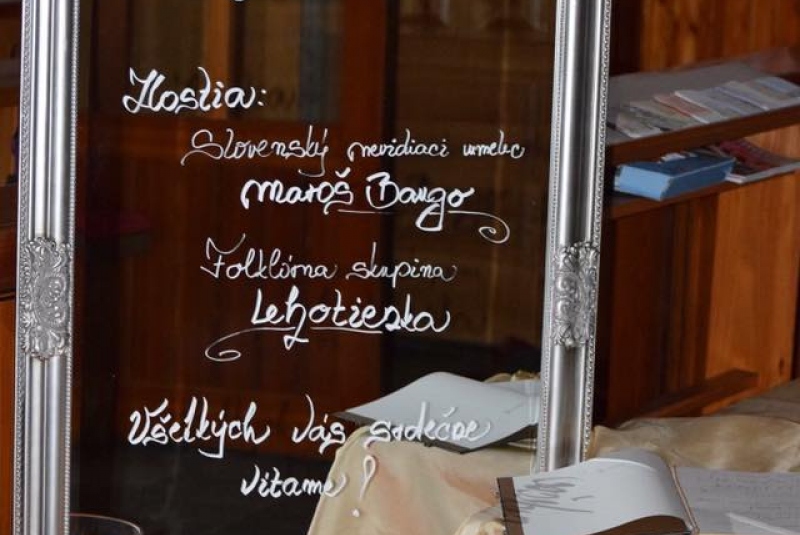 Hostia:
Slovenský nevidiaci umelec
Maroš Bango
Folklórna skupina
Lehotieska
Všetkých vás srdečne
vítame!